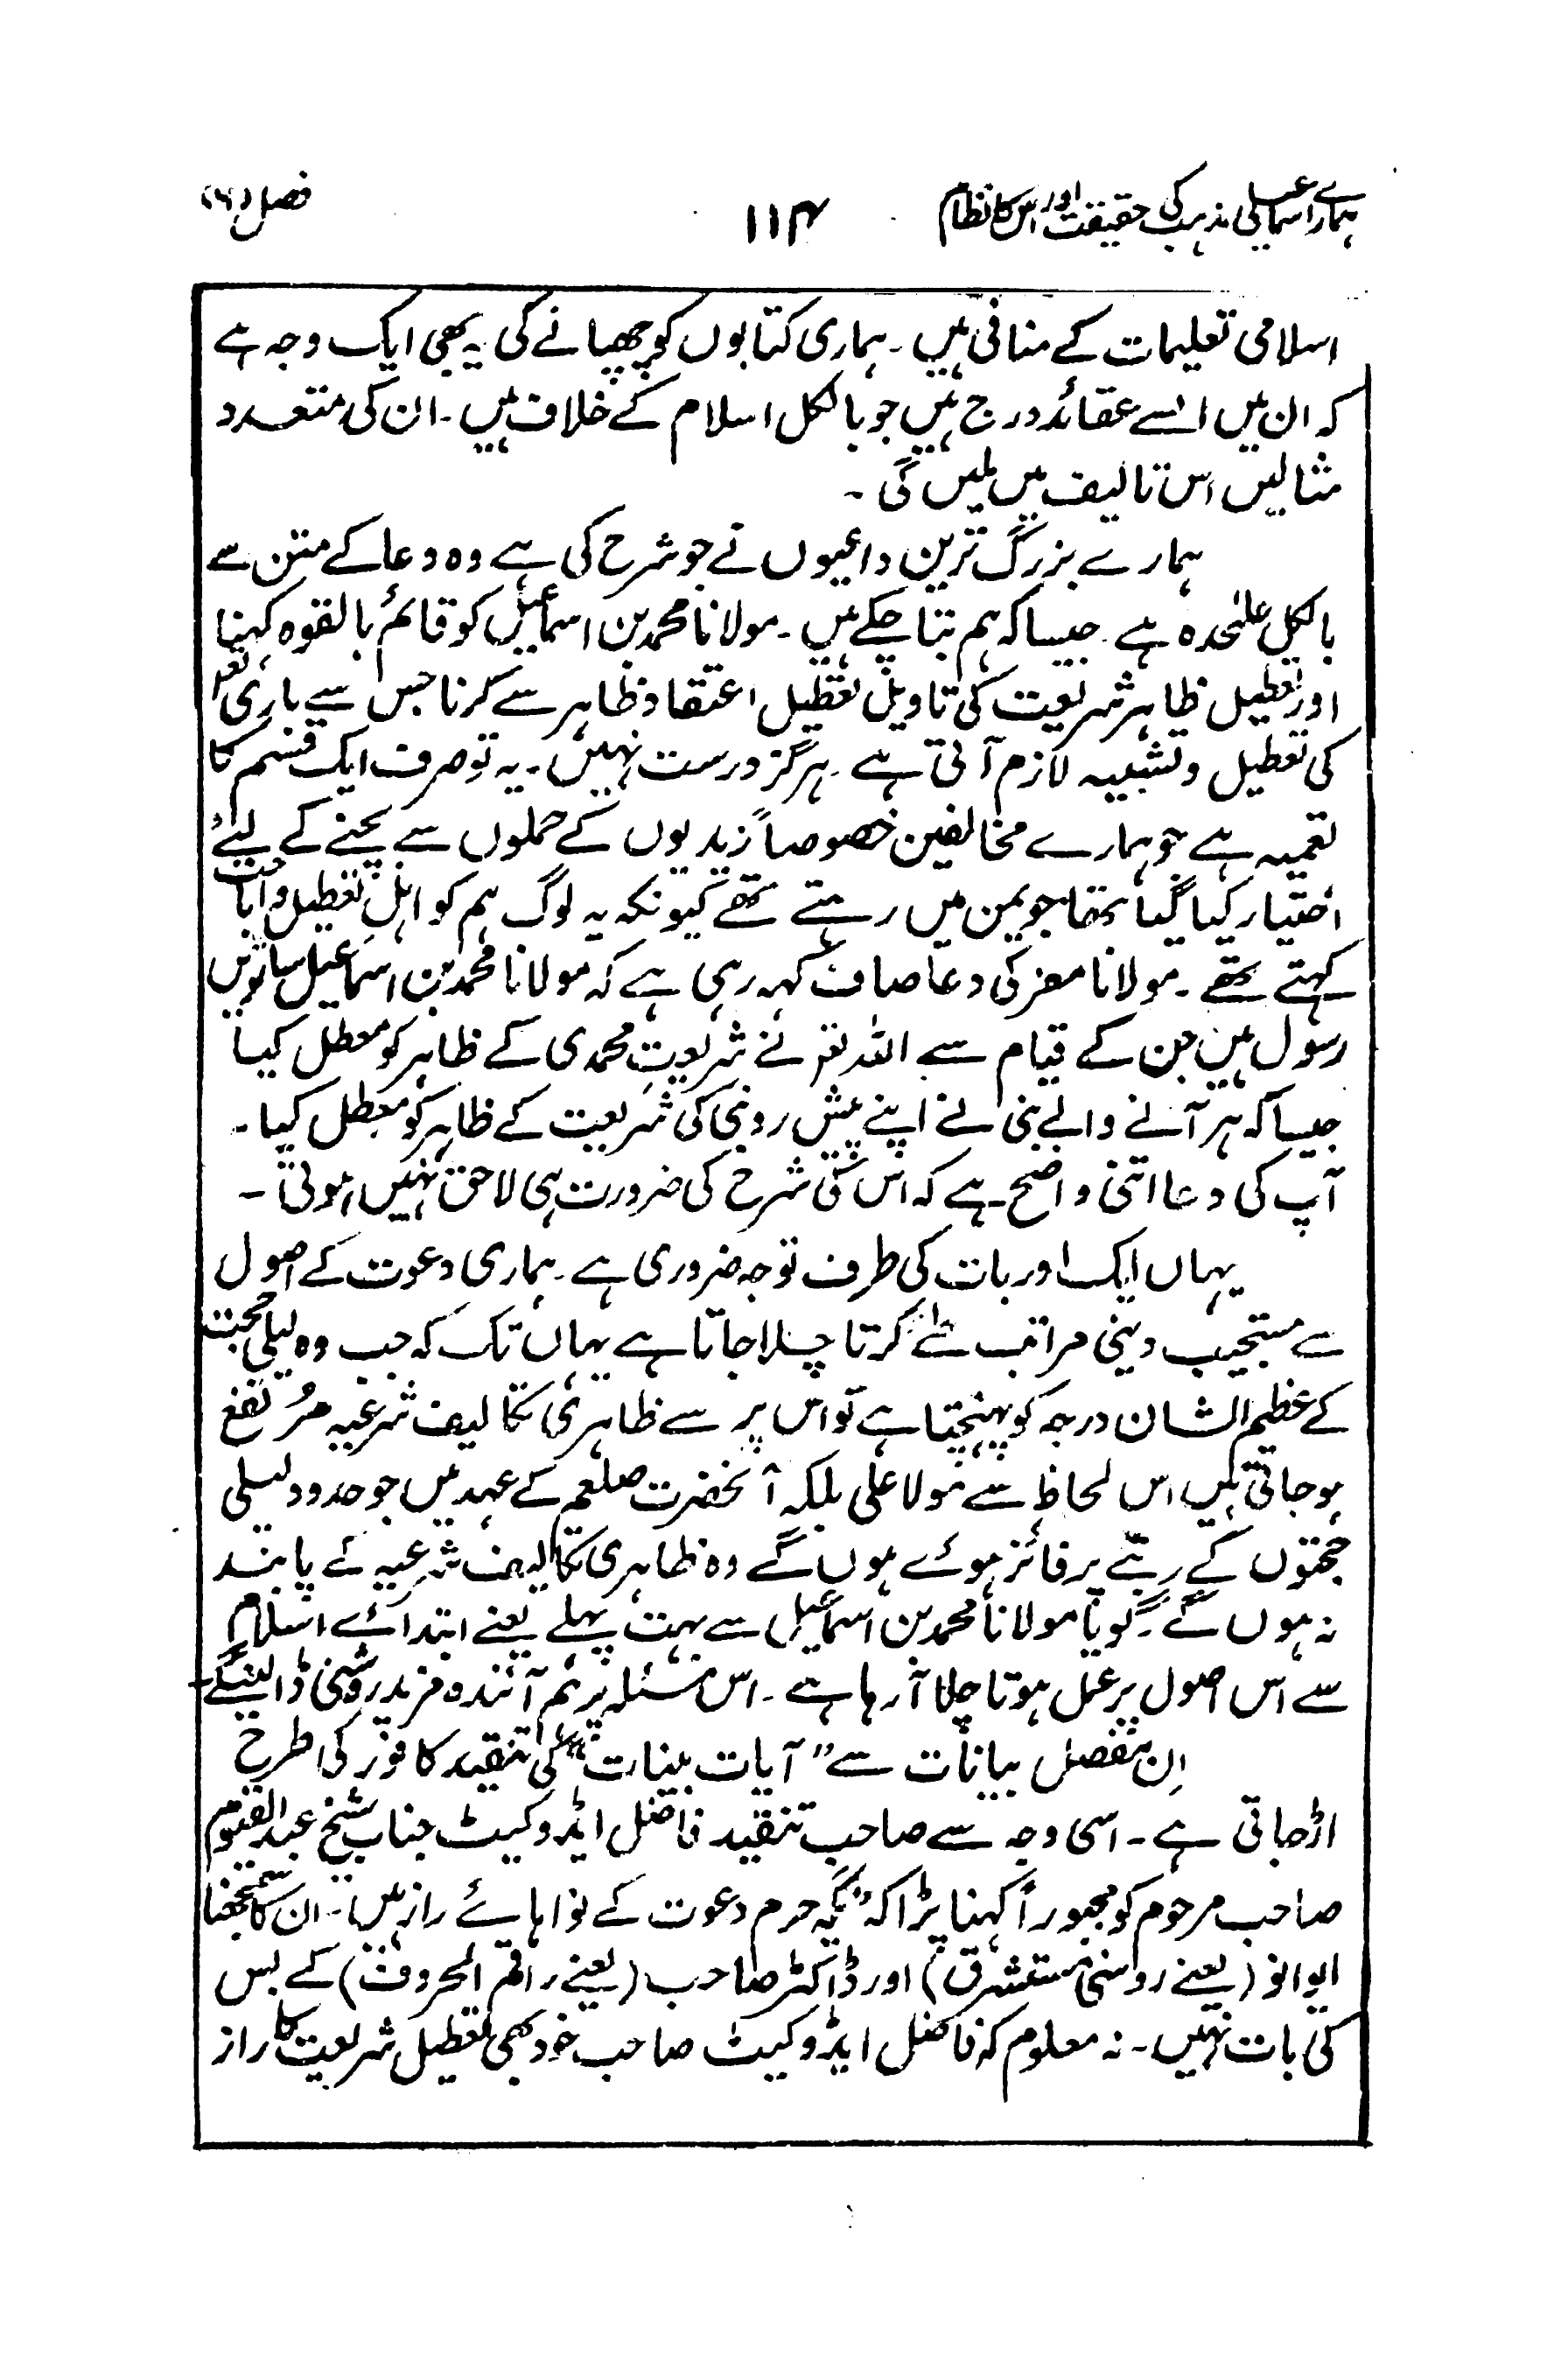 ہمارے اسماعیلی مذہب کی حقیقت اور اس کا نظام ۱۱۴ فصل (۶)
اسلامی تعلیمات کے منافی ہیں ۔ ہماری کتابوں کو چھپانے کی یہ بھی ایک وجہ ہے
کہ ان میں ایسے عقائد درج ہیں جو بالکل اسلام کے خلاف ہیں ۔ ان کی متعدد
مثالیں اس تالیف میں ملیں گی ۔
ہمارے بزرگ ترین داعیوں نے جو شرح کی ہے وہ دعا کے متن سے
بالکل علٰحدہ ہے ۔ جیسا کہ ہم بتا چکے ہیں ۔ مولانا محمد بن اسماعیل کو قائم بالقوہ کہنا
اور تعطیل ظاہر شریعت کی تاویل تعطیل اعتقاد ظاہر سے کرنا جس سے باری تعم
کی تعطیل و تشبیہ لازم آتی ہے ۔ ہرگز درست نہیں ۔ یہ تو صرف ایک قسم کا
تعمیہ ہے جو ہمارے مخالفین خصوصاً زیدیوں کے حملوں سے بچنے کے لیے
اختیار کیا گیا تھا جو یمن میں رہتے تھے کیونکہ یہ لوگ ہم کو اہلِ تعطیل و اباحت
کہتے تھے ۔ مولانا معز کی دعا صاف کہہ رہی ہے کہ مولانا محمد بن اسماعیل ساتویں
رسول ہیں جن کے قیام سے اللہ تعم نے شریعتِ محمدی کے ظاہر کو معطل کیا
جیسا کہ ہر آنے والے نبی نے اپنے پیش رو نبی کی شریعت کے ظاہر کو معطل کیا ۔
آپ کی دعا اتنی واضح ہے کہ اس کی شرح کی ضرورت ہی لاحق نہیں ہوتی ۔
یہاں ایک اور بات کی طرف توجہ ضروری ہے ۔ ہماری دعوت کے اصول
سے مستجیب دینی مراتب طے کرتا چلا جاتا ہے یہاں تک کہ جب وہ لیلی حجت
کے عظیم الشان درجہ کو پہنچتا ہے تو اس پر سے ظاہری تکالیف شرعیہ مرتفع
ہو جاتی ہیں اس لحاظ سے مولا علی بلکہ آنحضرت صلعم کے عہد میں جو حدود لیلی
حجتوں کے رتبے پر فائز ہوئے ہوں گے وہ ظاہری تکالیف شرعیہ کے پابند
نہ ہوں گے ۔ گویا مولانا محمد بن اسماعیل سے بہت پہلے یعنے ابتدائے اسلام
سے اس اصول پر عمل ہوتا چلا آ رہا ہے ۔ اس مسئلہ پر ہم آئندہ مزید روشنی ڈالینگے ۔
اِن مفصل بیانات سے ”آیات بینات“ کی تنقید کافور کی طرح
اڑ جاتی ہے ۔ اسی وجہ سے صاحب تنقید فاضل ایڈوکیٹ جناب شیخ عبد القیوم
صاحب مرحوم کو مجبوراً کہنا پڑا کہ ”یہ حرم دعوت کے نواہائے راز ہیں ۔ ان کا سمجھنا
ایوانو (یعنے روسی مستشرق) اور ڈاکٹر صاحب (یعنے راقم الحروف) کے بس
کی بات نہیں ۔ نہ معلوم کہ فاضل ایڈوکیٹ صاحب خود بھی تعطیل شریعت کا راز